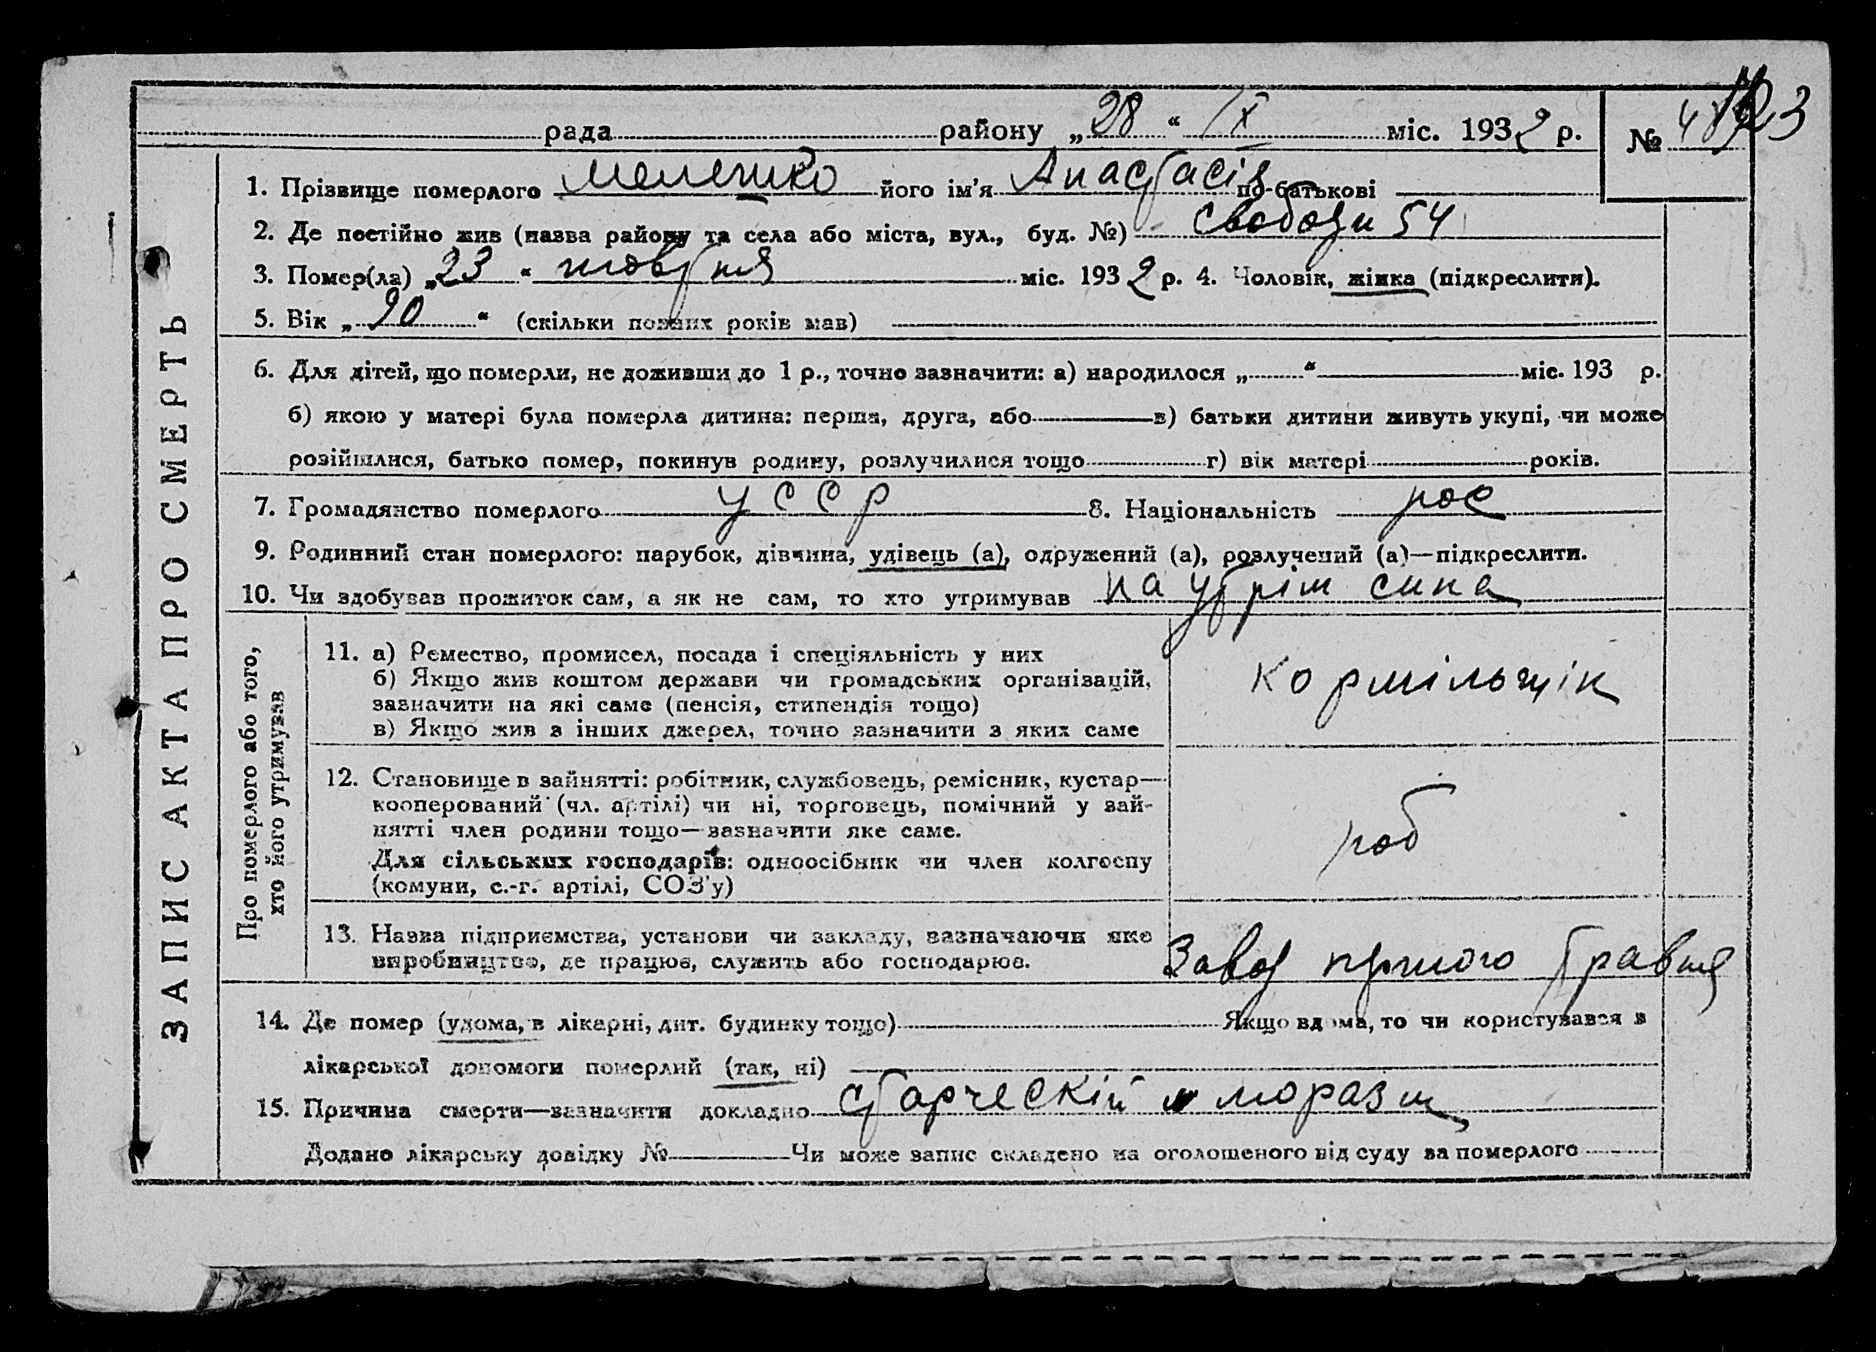 рада районy „28“ IX міс. 1932 р. №
1. Прізвище померлого Мелешко його ім'я Анастасія по-батькові
2. Де постійно жив (назва району та села або міста, вул., буд. №) Свободи 54
3. Помер(ла) „23“ жовтня міс. 1932 р. 4. Чоловік, жінка (підкреслити).
5. Вік „90“ (скільки повних років мав)
6. Для дітей, що померли, не доживши до 1 р., точно зазначити: а) народилося „ “ міс. 193 р.
б) якою у матері була померла дитина: перша, друга, або в) батьки дитини живуть укупі, чи може
розійшлися, батько помер, покинув родину, розлучилися тощо г) вік матері років.
7. Громадянство померлого УССР 8. Національність рос
9. Родинний стан померлого: парубок, дівчина, удівець (а), одружений (а), розлучений (а)—підкреслити.
10. Чи здобував прожиток сам, а як не сам, то хто утримував на утрім сина
ЗАПИС АКТА ПРО СМЕРТЬ
Про померлого або того,
хто його утримував
11. а) Ремество, промисел, посада і спеціяльність у них
б) Якщо жив коштом держави чи громадських організацій,
зазначити на які саме (пенсія, стипендія тощо)
в) Якщо жив з інших джерел, точно зазначити з яких саме
кормільщік
12. Становище в зайнятті: робітник, службовець, ремісник, кустар—
кооперований (чл. артілі) чи ні, торговець, помічний у зай-
нятті член родини тощо—зазначити яке саме.
Для сільських господарів: одноосібник чи член колгоспу
(комуни, с.-г. артілі, СОЗ'у)
роб
13. Назва підприємства, установи чи закладу, зазначаючи яке
виробництво, де працює, служить або господарює.
Завод першого травня
14. Де помер (удома, в лікарні, дит. будинку тощо) Якщо вдома, то чи користувався з
лікарської допомоги померлий (так, ні)
15. Причина смерти—зазначити докладно старческій маразм
Додано лікарську довідку № Чи може запис складено на оголошеного від суду за померлого